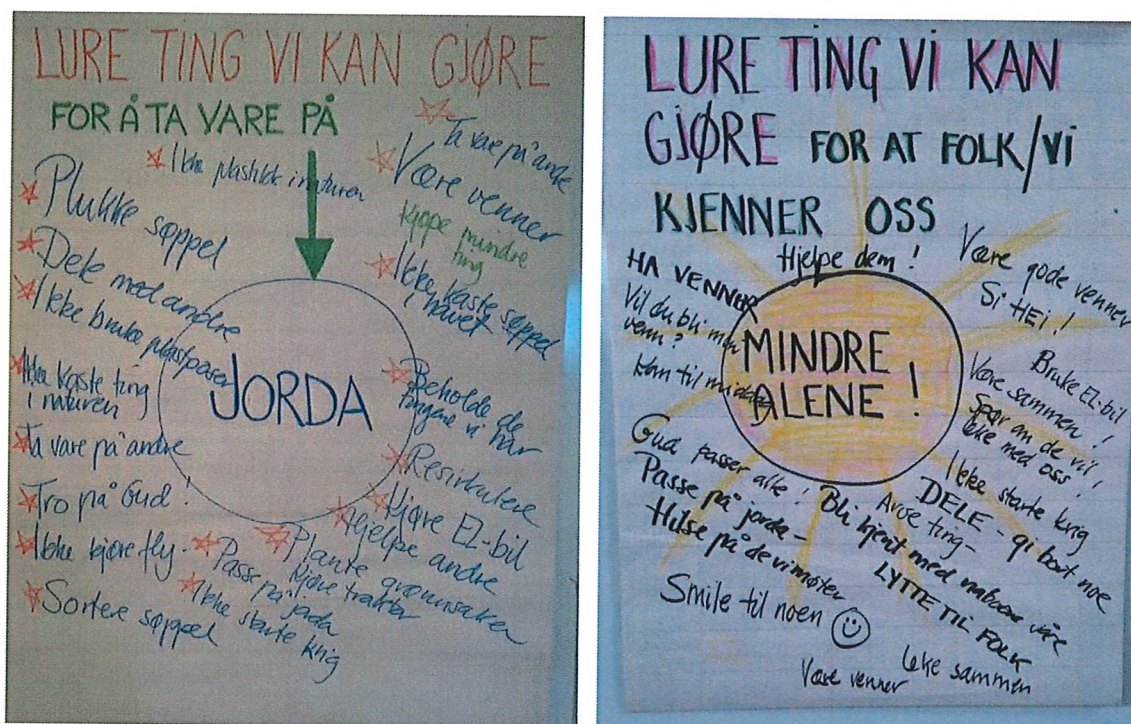 LURE TING VI KAN GJØRE
FOR Å TA VARE PÅ
JORDA
Ikke plastikk i naturen
Plukke søppel
Dele med andre
Ikke bruke plastposer
Ikke kaste ting
i naturen
Ta vare på andre
Tro på Gud!
Ikke kjøre fly
Sortere søppel
Ta vare på andre
Være venner
Kjøpe mindre
ting
Ikke kaste søppel
i havet
Beholde de
tingene vi har
Resirkulere
Kjøre El-bil
Hjelpe andre
Plante grønnsaker
Kjøre traktor
Passe på
jorda
Ikke starte krig
LURE TING VI KAN
GJØRE FOR AT FOLK/VI
KJENNER OSS
MINDRE
ALENE!
Hjelpe dem!
HA VENNER
Vil du bli min
venn?
Kom til middag
Gud passer alle!
Passe på jorda-
Hilse på de vi møter
Smile til noen
Være gode venner
Si HEI!
Bruke El-bil
Være sammen!
Spør om de vil
leke med oss!
Ikke starte krig
DELE - gi bort noe
ting-
Bli kjent med naboene våre
LYTTE TIL FOLK
Leke sammen
Være venner